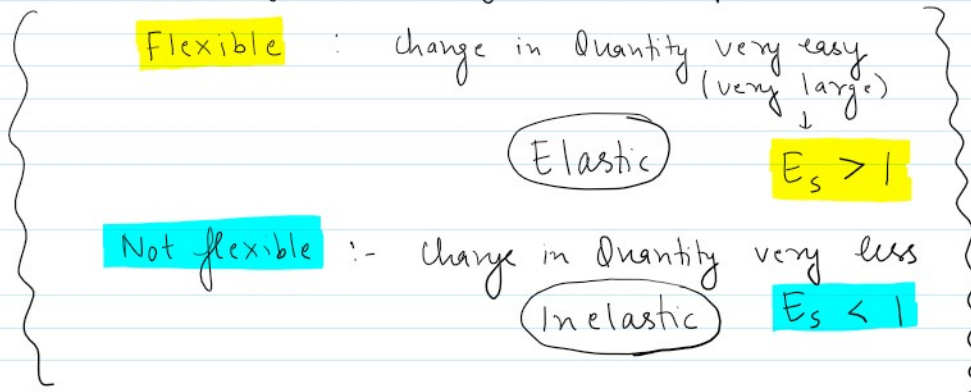 Flexible : change in Quantity very easy
(very large)
↓
Elastic Es > 1
Not flexible :- Change in Quantity very less
Inelastic Es < 1